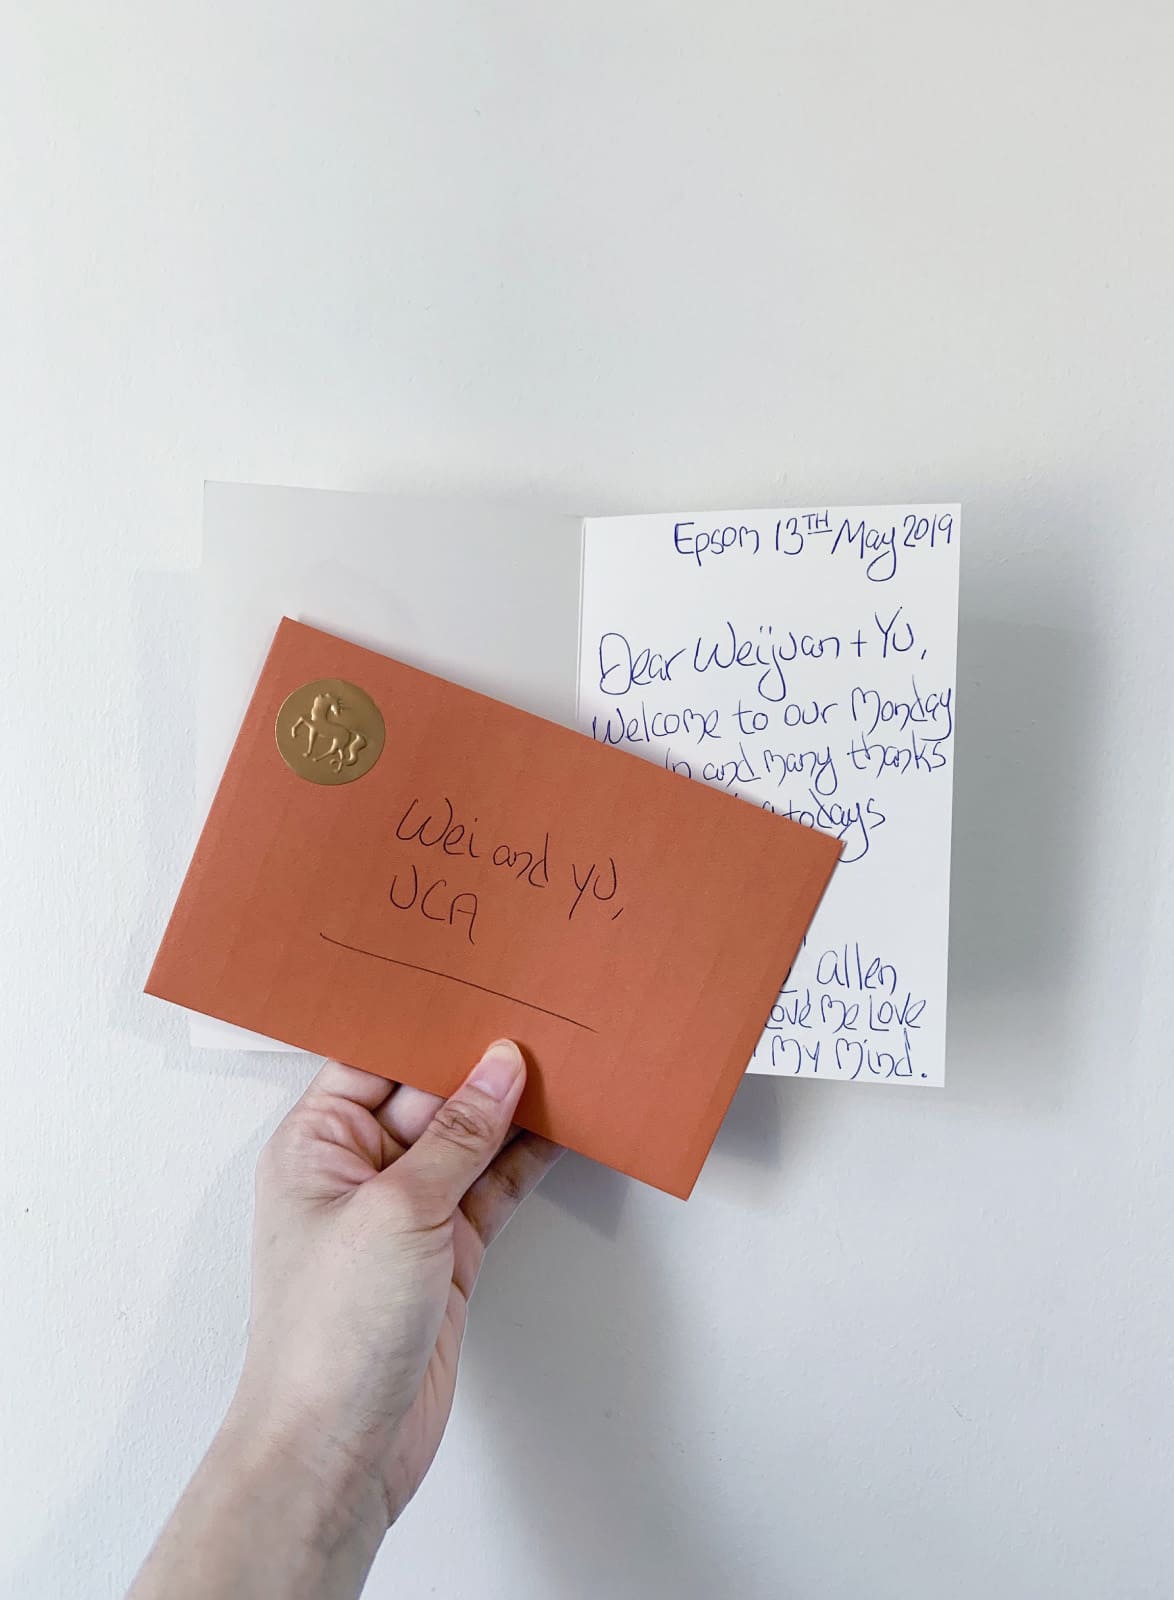 Epsom 13TH May 2019
Dear Weijuan + Yu,
Welcome to our Monday
and many thanks
todays
allen
Love Me Love
My Mind.
Wei and YU,
UCA